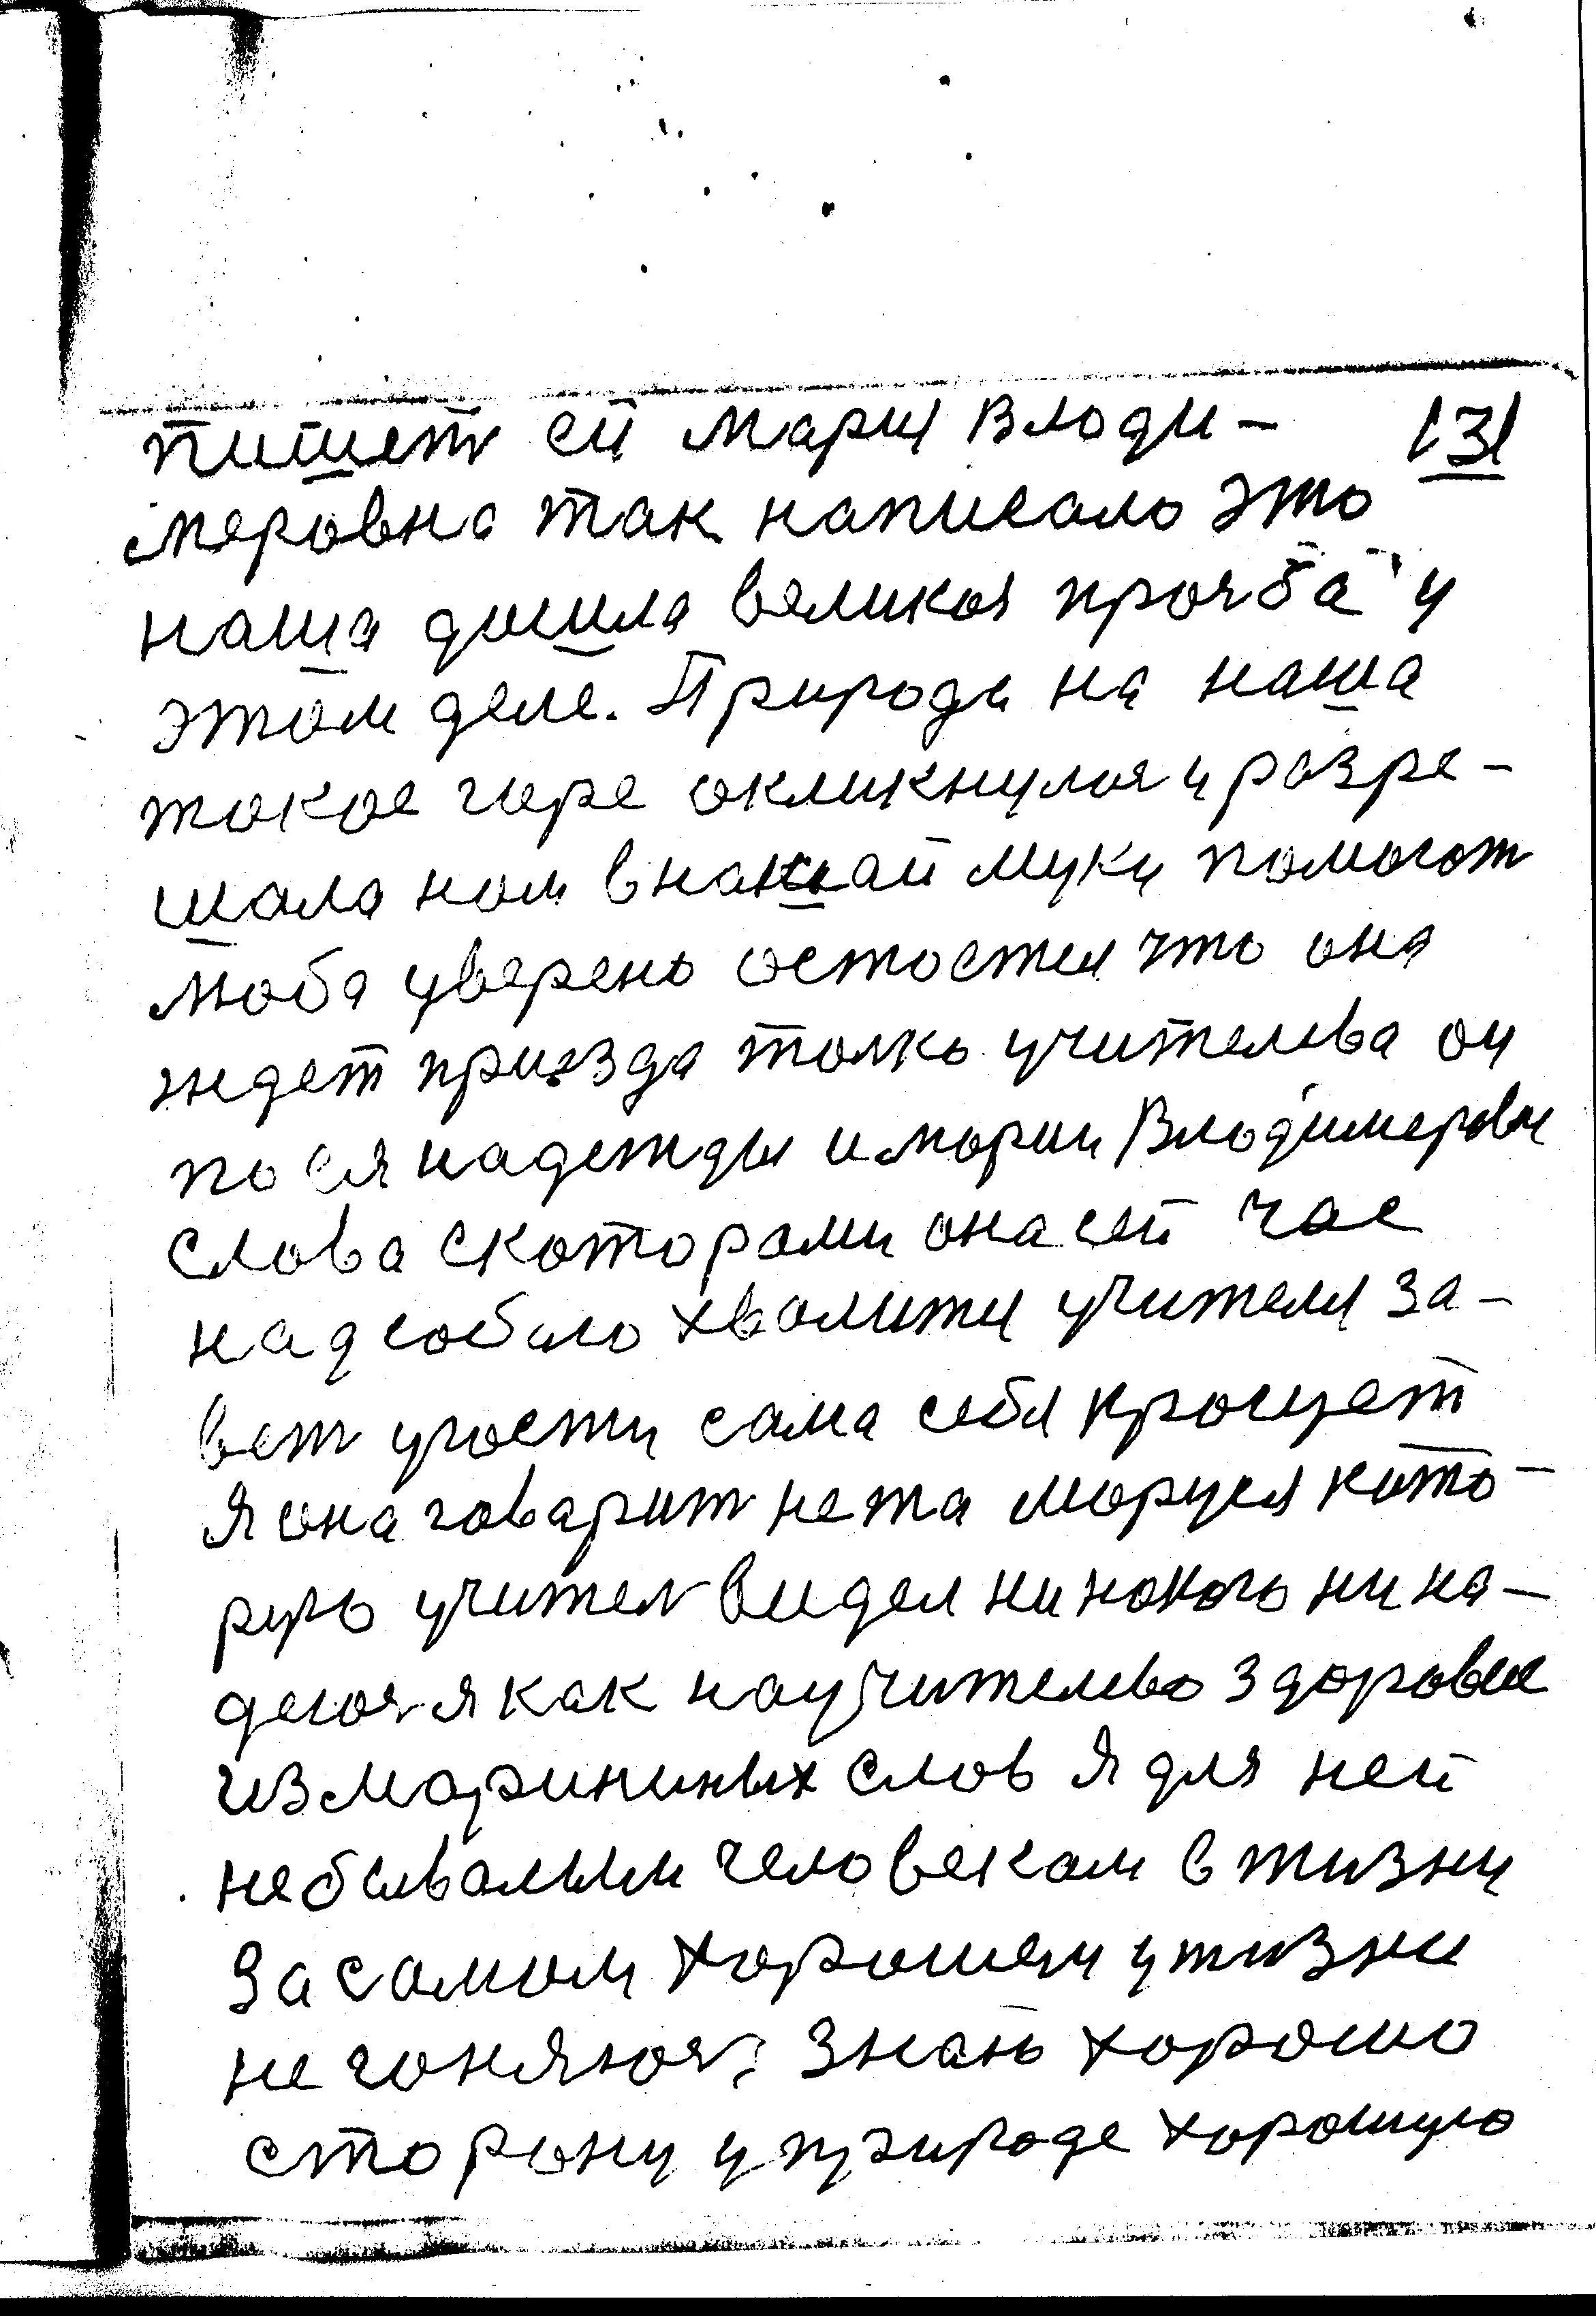 пишет ей Мария Влоди- 131
меровна так написало это
наша дошла великая прозба у
этом деле. Природа на наша
такое горе окликнулся и разре-
шала нам в нашай муки помогат
Люба уверено остаетея что она
ждет приезда толко учителева он
по ея надежды и мории Влодимеровн
слова скоторами она сей час
над собою хвалится учителя за-
вет угости сама себя прощает
Я она говарит не та моруся кото-
рую учител видел ни накого ни на-
деюся як как на учителево здоровее
из марининых слов я для ней
небывалым человекам в жизни
За самом хорошем у жизни
не гонялся, знать хорошо
сторону у природе хорошую